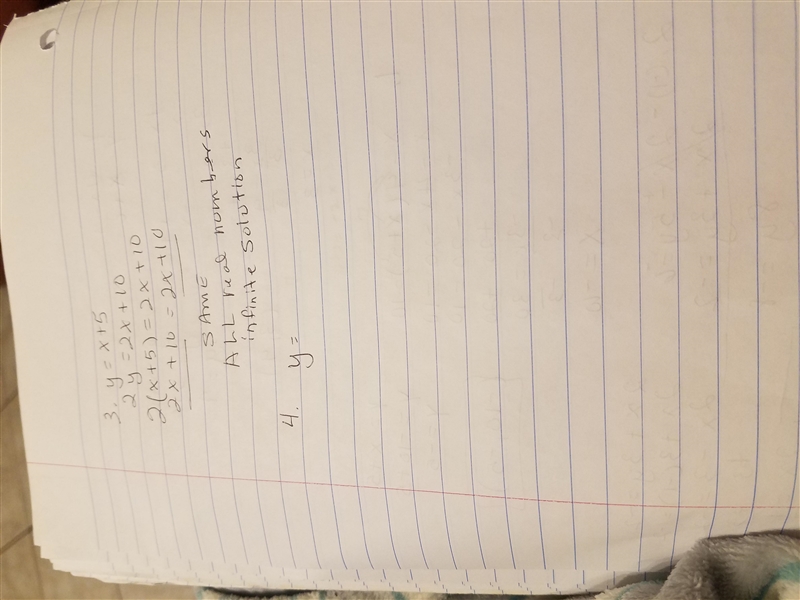 3. y = x+5
2y = 2x+10
2(x+5) = 2x+10
2x+10 = 2x+10
SAME
ALL real nombers
infinite solution
4. y =